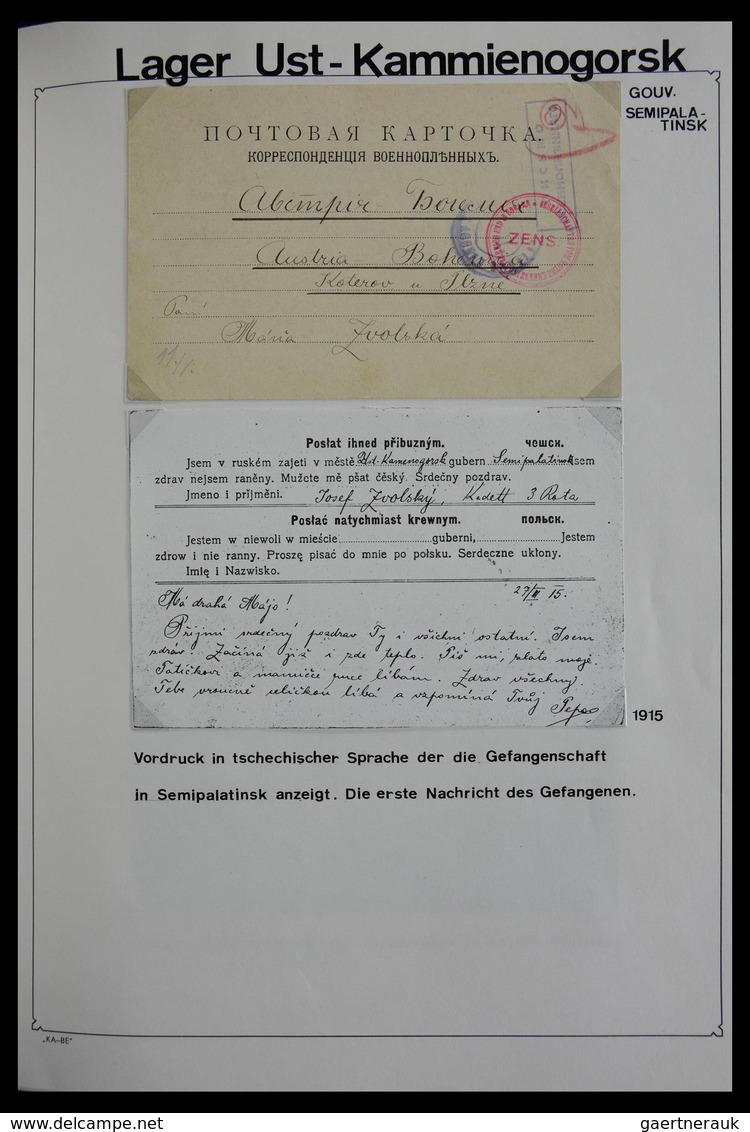 Lager Ust-Kammienogorsk
GOUV.
SEMIPALA-
TINSK
ПОЧТОВАЯ КАРТОЧКА.
КОРРЕСПОНДЕНЦІЯ ВОЕННОПЛѢННЫХЪ.
Австрія - Богемія
ZENS.
Austria Bohemia
Koterov u Plzně
Paní
Mária Zvolská
Poslat ihned příbuzným. чешск.
Jsem v ruském zajeti v městě Ust-Kamenogorsk gubern Semipalatinsk sem
zdrav nejsem raněny. Mužcte mě pšat čěský. Srdečny pozdrav.
Jmeno i přijměni. Josef Zvolský, Kadett 3 Rota
Posłać natychmiast krewnym. польск.
Jestem w niewoli w mieście guberni, Jestem
zdrow i nie ranny. Proszę pisać do mnie po połsku. Serdeczne ukłony.
Imię i Nazwisko.
27/III 15.
Má drahá Májo!
Přijmi srdečný pozdrav Ty i všichni ostatní. Jsem
zdráv. Začíná již i zde teplo. Piš mi, zlato moje.
Tatíčkovi a mamičce ruce líbám. Zdrav všechny.
Tebe vroucně veličkou líbá a vzpomíná Tvůj
Pepa
1915
Vordruck in tschechischer Sprache der die Gefangenschaft
in Semipalatinsk anzeigt. Die erste Nachricht des Gefangenen.
„KA-BE"
www.delcampe.net
gaertnerauk